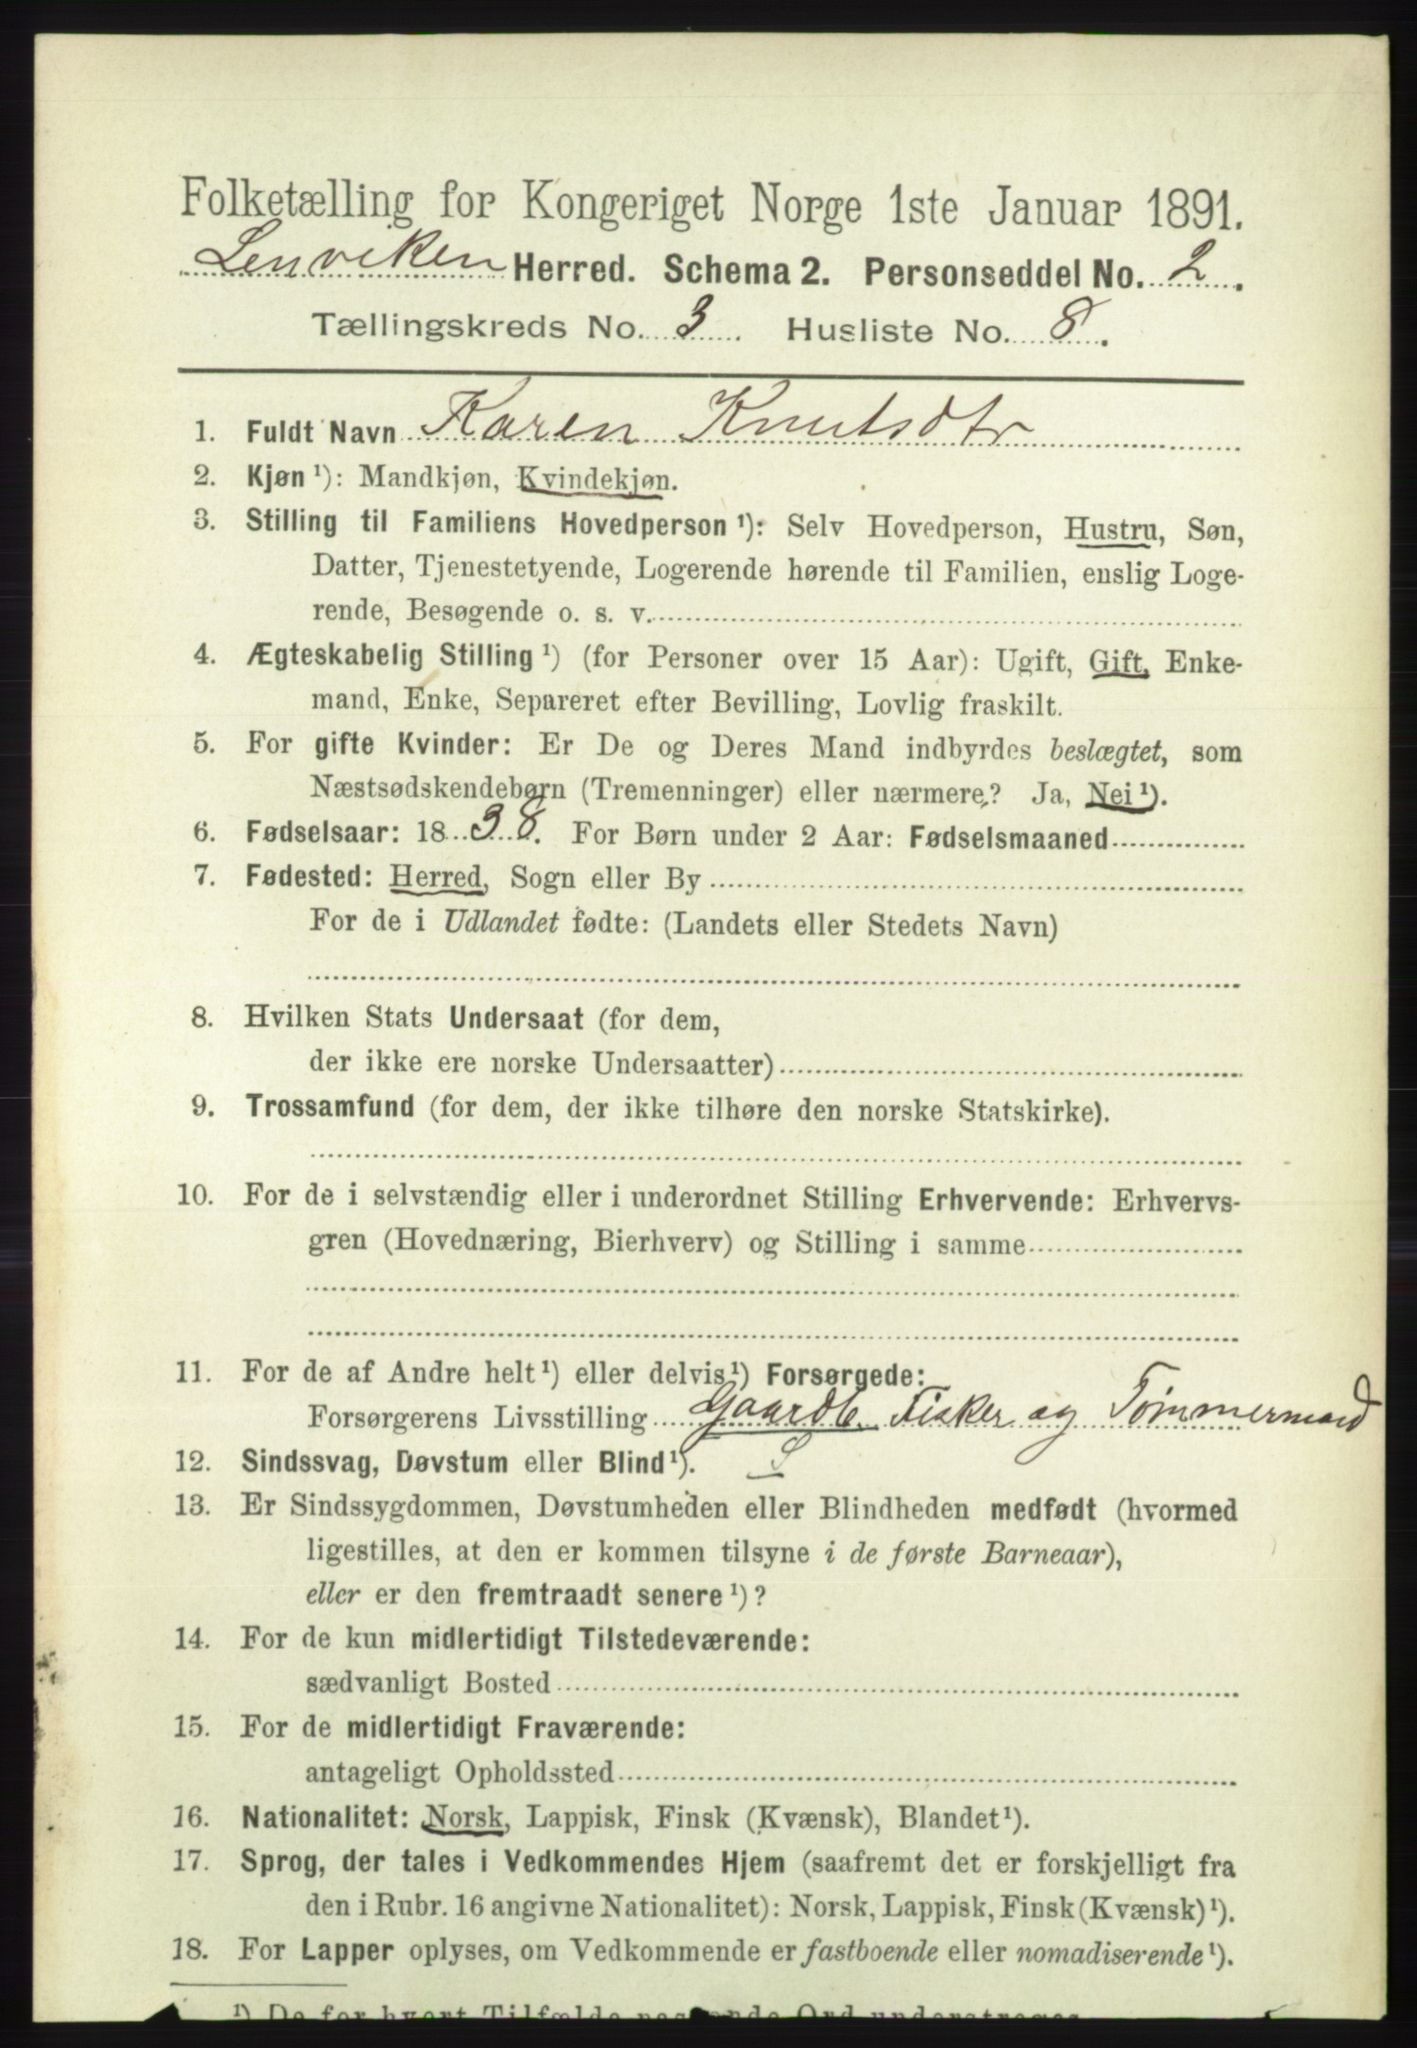 Folketælling for Kongeriget Norge 1ste Januar 1891.
Lenviken Herred. Schema 2. Personseddel No. 2.
Tællingskreds No. 3. Husliste No. 8.
1. Fuldt Navn Karen Knutsdtr
2. Kjøn¹): Mandkjøn, Kvindekjøn.
3. Stilling til Familiens Hovedperson¹): Selv Hovedperson, Hustru, Søn,
Datter, Tjenestetyende, Logerende hørende til Familien, enslig Loge-
rende, Besøgende o. s. v.
4. Ægteskabelig Stilling¹) (for Personer over 15 Aar): Ugift, Gift, Enke-
mand, Enke, Separeret efter Bevilling, Lovlig fraskilt.
5. For gifte Kvinder: Er De og Deres Mand indbyrdes beslægtet, som
Næstsødskendebørn (Tremenninger) eller nærmere? Ja, Nei¹).
6. Fødselsaar: 1838. For Børn under 2 Aar: Fødselsmaaned
7. Fødested: Herred, Sogn eller By
For de i Udlandet fødte: (Landets eller Stedets Navn)
8. Hvilken Stats Undersaat (for dem,
der ikke ere norske Undersaatter)
9. Trossamfund (for dem, der ikke tilhøre den norske Statskirke).
10. For de i selvstændig eller i underordnet Stilling Erhvervende: Erhvervs-
gren (Hovednæring, Bierhverv) og Stilling i samme
11. For de af Andre helt¹) eller delvis¹) Forsørgede:
Forsørgerens Livsstilling Gaardb. Fisker og Tømmermand
12. Sindssvag, Døvstum eller Blind¹). S
13. Er Sindssygdommen, Døvstumheden eller Blindheden medfødt (hvormed
ligestilles, at den er kommen tilsyne i de første Barneaar),
eller er den fremtraadt senere¹)?
14. For de kun midlertidigt Tilstedeværende:
sædvanligt Bosted
15. For de midlertidigt Fraværende:
antageligt Opholdssted
16. Nationalitet: Norsk, Lappisk, Finsk (Kvænsk), Blandet¹).
17. Sprog, der tales i Vedkommendes Hjem (saafremt det er forskjelligt fra
den i Rubr. 16 angivne Nationalitet): Norsk, Lappisk, Finsk (Kvænsk)¹).
18. For Lapper oplyses, om Vedkommende er fastboende eller nomadiserende¹).
¹) De for hvert Tilfælde passende Ord understreges.